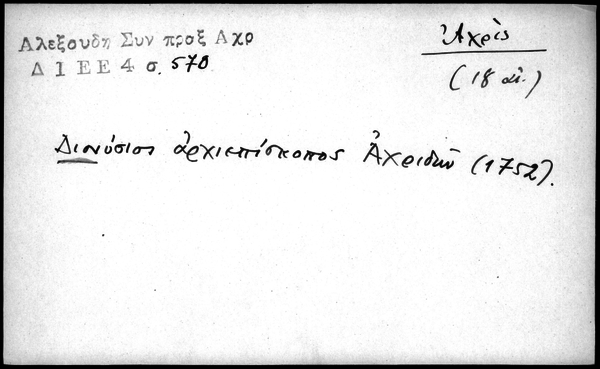 Αλεξουδη Συν προξ Αχρ
Δ Ι Ε Ε 4 σ. 570
Ἀχρὶς
(18 αἰ.)
Διονύσιος ἀρχιεπίσκοπος Ἀχριδῶν (1752).